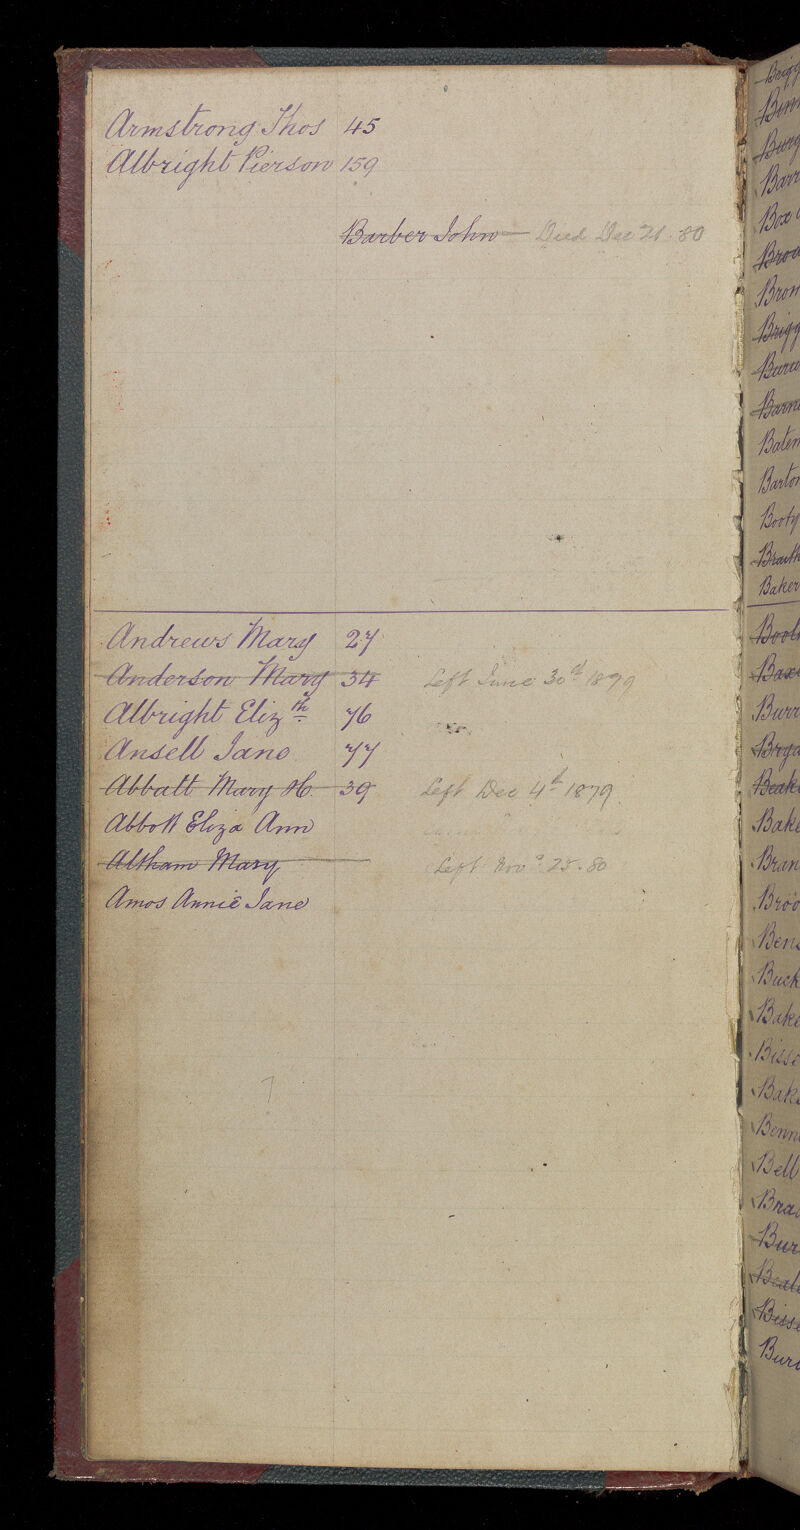 Armstrong Thos 45
Albright Pierson 159
Barber John — Died Dec 21. 80
Andrews Mary 27
Anderson Mary 34 Left June 30th 1879
Albright Elizth 76
Ansell Jane 77
Abbatt Mary H. 39 Left Dec 4th 1879
Abbott Eliza Ann
Altham Mary Left Nov 25. 80
Amos Annie Jane
Box
Baten
Barton
Booty
Baker
Burr
Bake
Bran
Broo
Bens
Buck
Bake
Bisse
Bake
Benn
Bell
Bra
Bur
Beale
Bisse
Bur